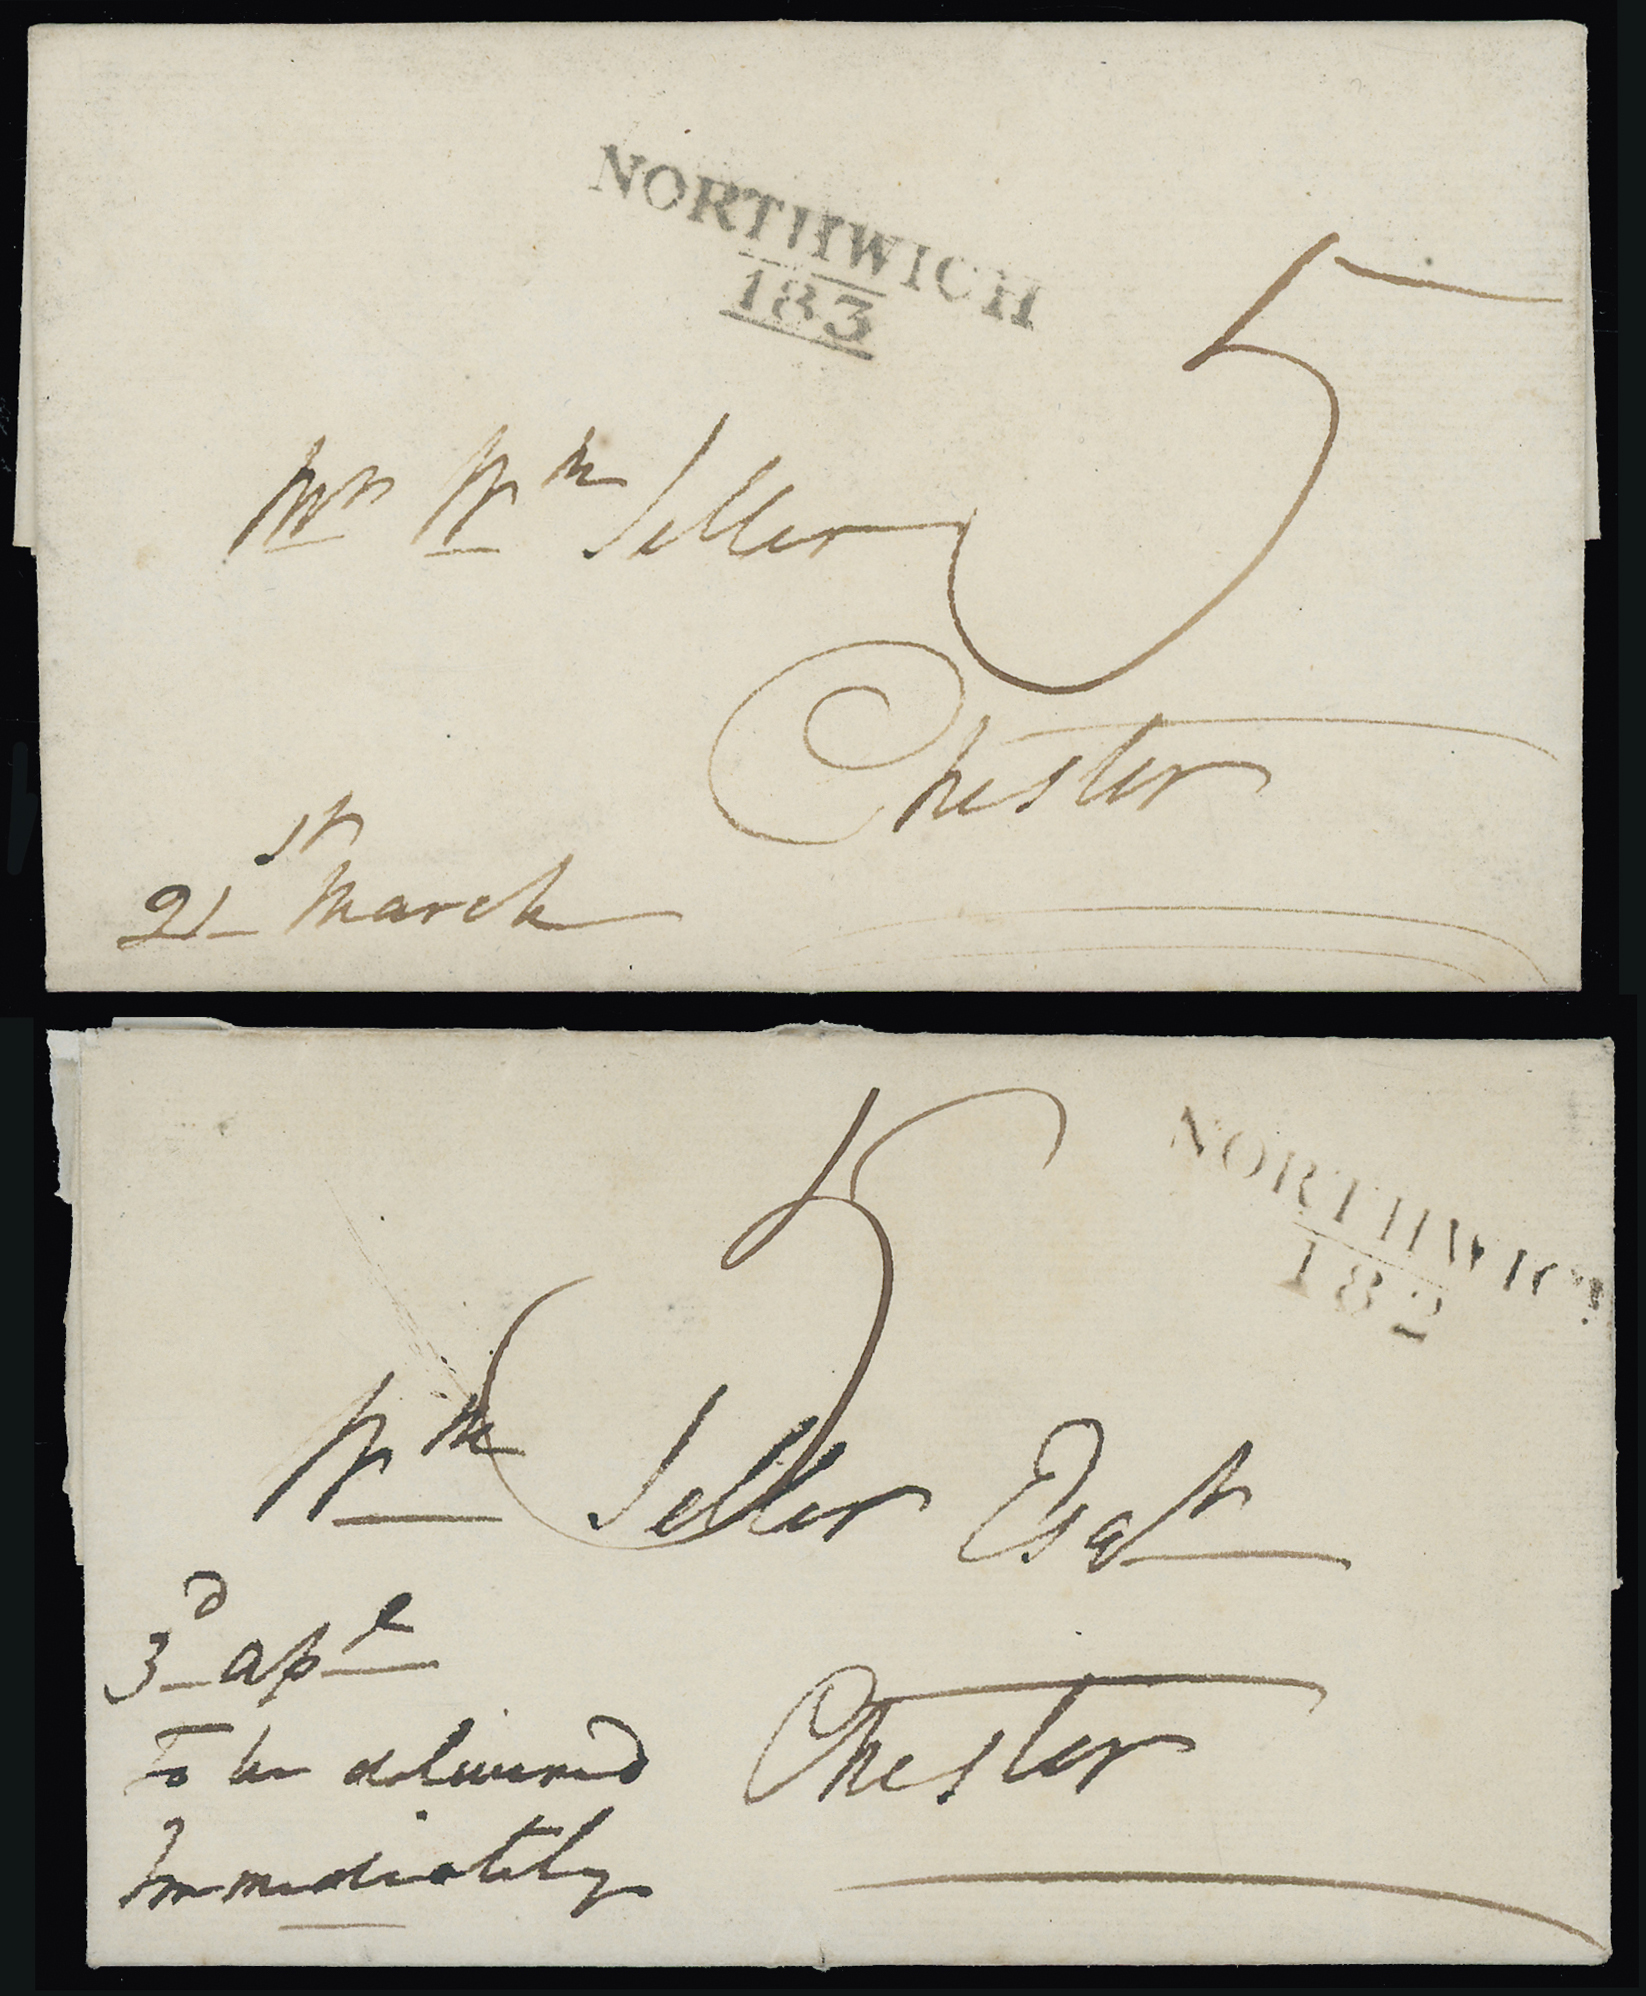 NORTHWICH
183
5
Mr Wm Seller
Chester
21st March
5
NORTHWICH
182
Wm Seller Esqr
3d apl
To be delivered
Immediately
Chester